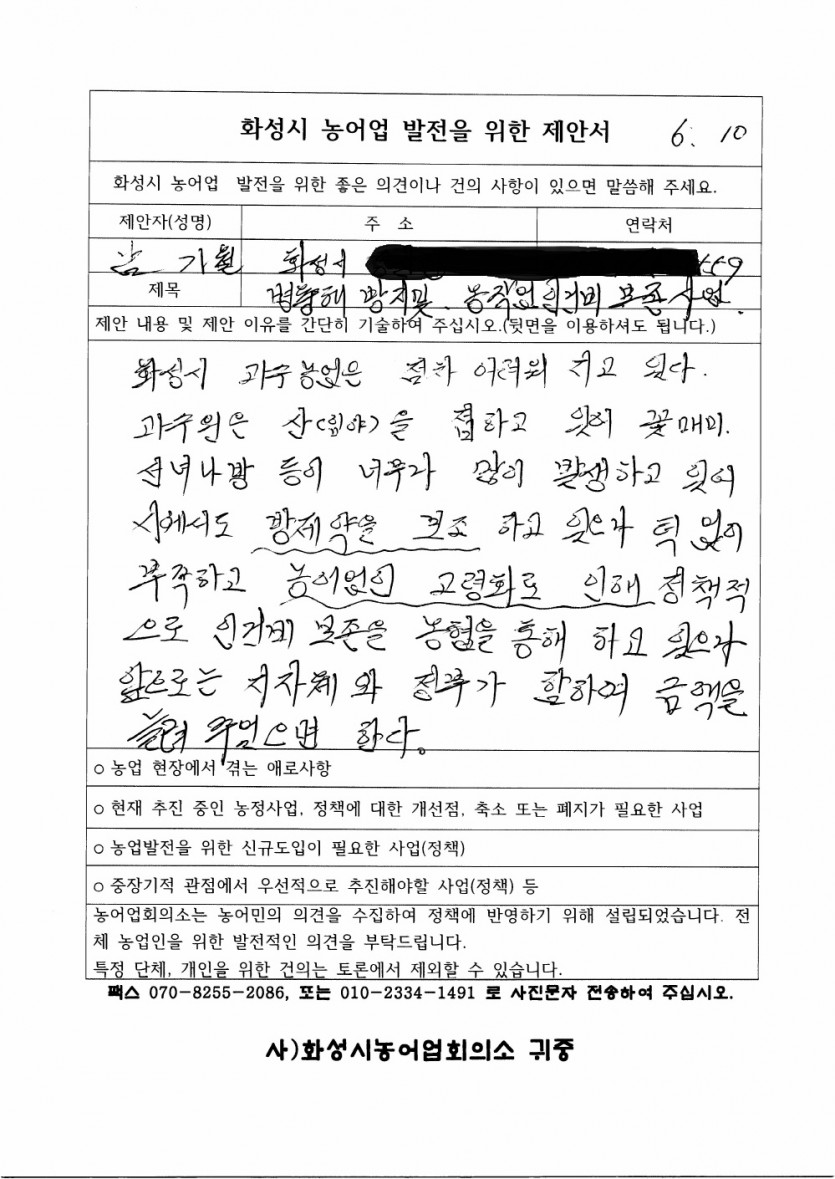 화성시 농어업 발전을 위한 제안서 6. 10
화성시 농어업 발전을 위한 좋은 의견이나 건의 사항이 있으면 말씀해 주세요.
제안자(성명) 주 소 연락처
남 기월 화성시
제목 병충해 방지 및. 농작업 인건비 보존사업.
제안 내용 및 제안 이유를 간단히 기술하여 주십시오.(뒷면을 이용하셔도 됩니다.)
화성시 과수농업은 점차 어려워 지고 있다.
과수원은 산(임야)을 접하고 잇어 꽃매미.
선녀나방 등이 너무나 많이 발생하고 잇어
시에서도 방제약을 보조 하고 잇으나 턱 없이
부족하고 농어업인 고령화로 인해 정책적
으로 인건비 보존을 농협을 통해 하고 잇으나
앞으로는 지자체와 정부가 합하여 금액을
늘려 주엇으면 한다.
○ 농업 현장에서 겪는 애로사항
○ 현재 추진 중인 농정사업, 정책에 대한 개선점, 축소 또는 폐지가 필요한 사업
○ 농업발전을 위한 신규도입이 필요한 사업(정책)
○ 중장기적 관점에서 우선적으로 추진해야할 사업(정책) 등
농어업회의소는 농어민의 의견을 수집하여 정책에 반영하기 위해 설립되었습니다. 전
체 농업인을 위한 발전적인 의견을 부탁드립니다.
특정 단체, 개인을 위한 건의는 토론에서 제외할 수 있습니다.
팩스 070-8255-2086, 또는 010-2334-1491 로 사진문자 전송하여 주십시오.
사)화성시농어업회의소 귀중